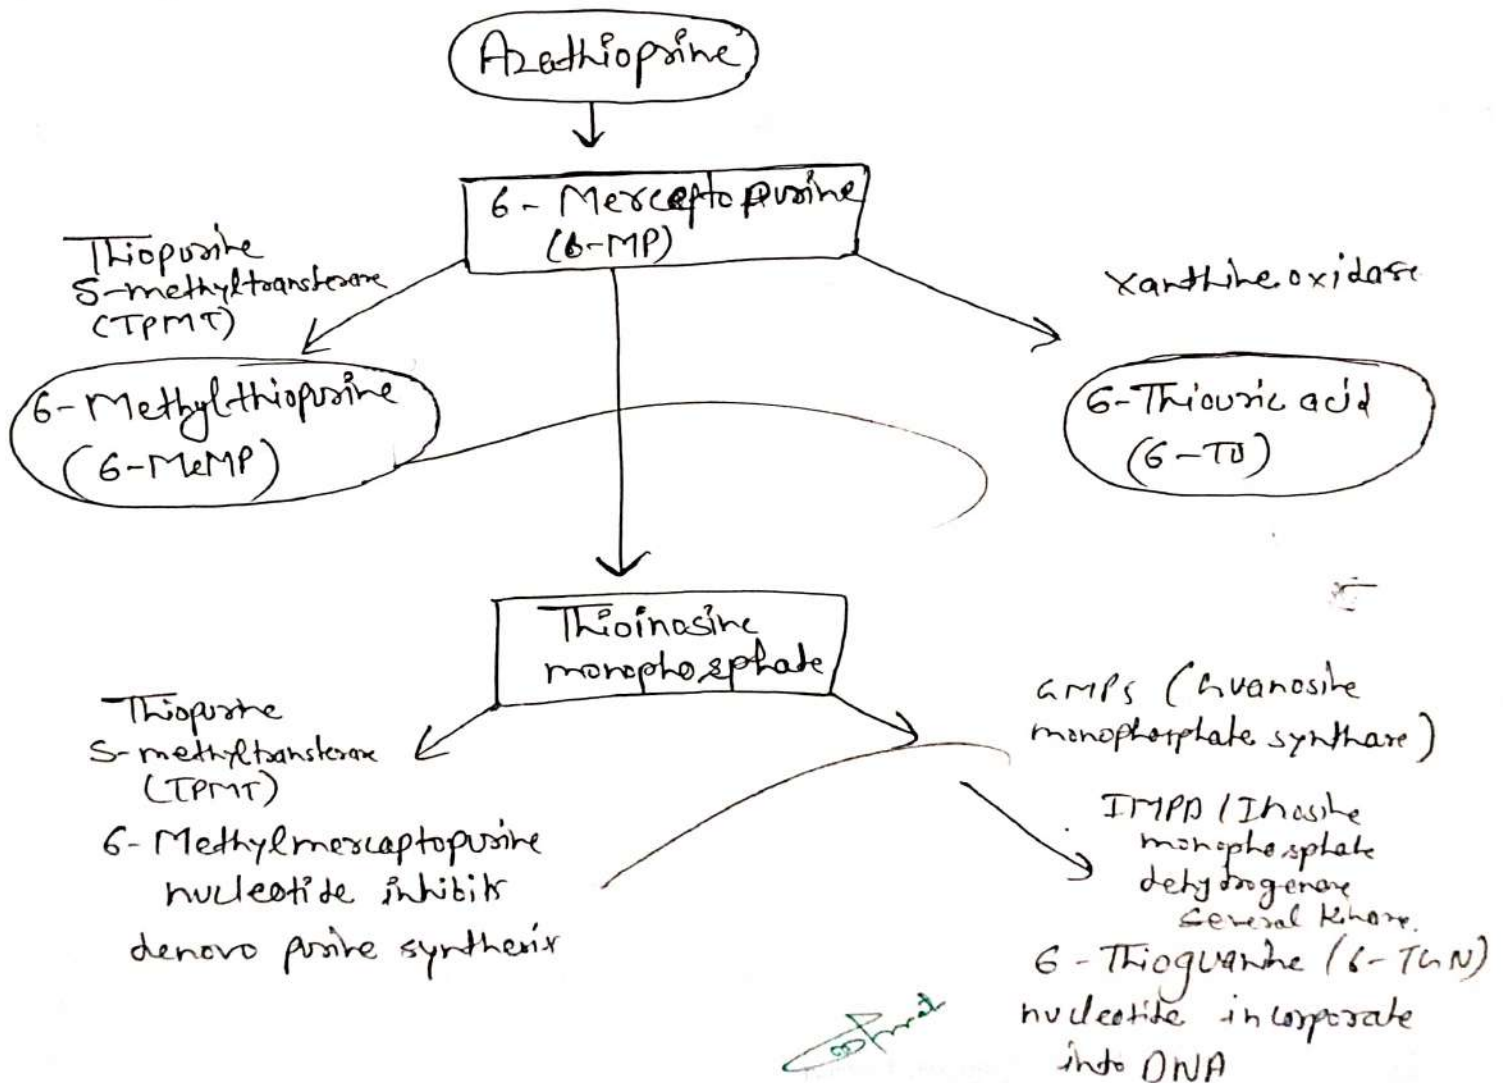 Azathioprine
6- Mercaptopurine
(6-MP)
Thiopurine
S-methyltransferase
(TPMT)
Xanthine oxidase
6-Methylthiopurine
(6-MeMP)
6-Thiouric acid
(6-TU)
Thioinosine
monophosphate
Thiopurine
S-methyltransferase
(TPMT)
6- Methylmercaptopurine
nucleotide inhibits
denovo purine synthesis
GMPS (Guanosine
monophosphate synthase)
IMPD (Inosine
monophosphate
dehydrogenase
several kinase.
6-Thioguanine (6-TGN)
nucleotide incorporate
into DNA